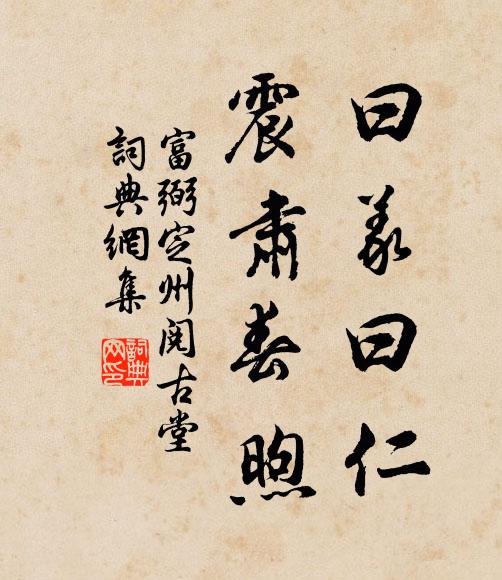 曰義曰仁
震肅春煦
富弼定州閱古堂
詞典網集
詞典
网印